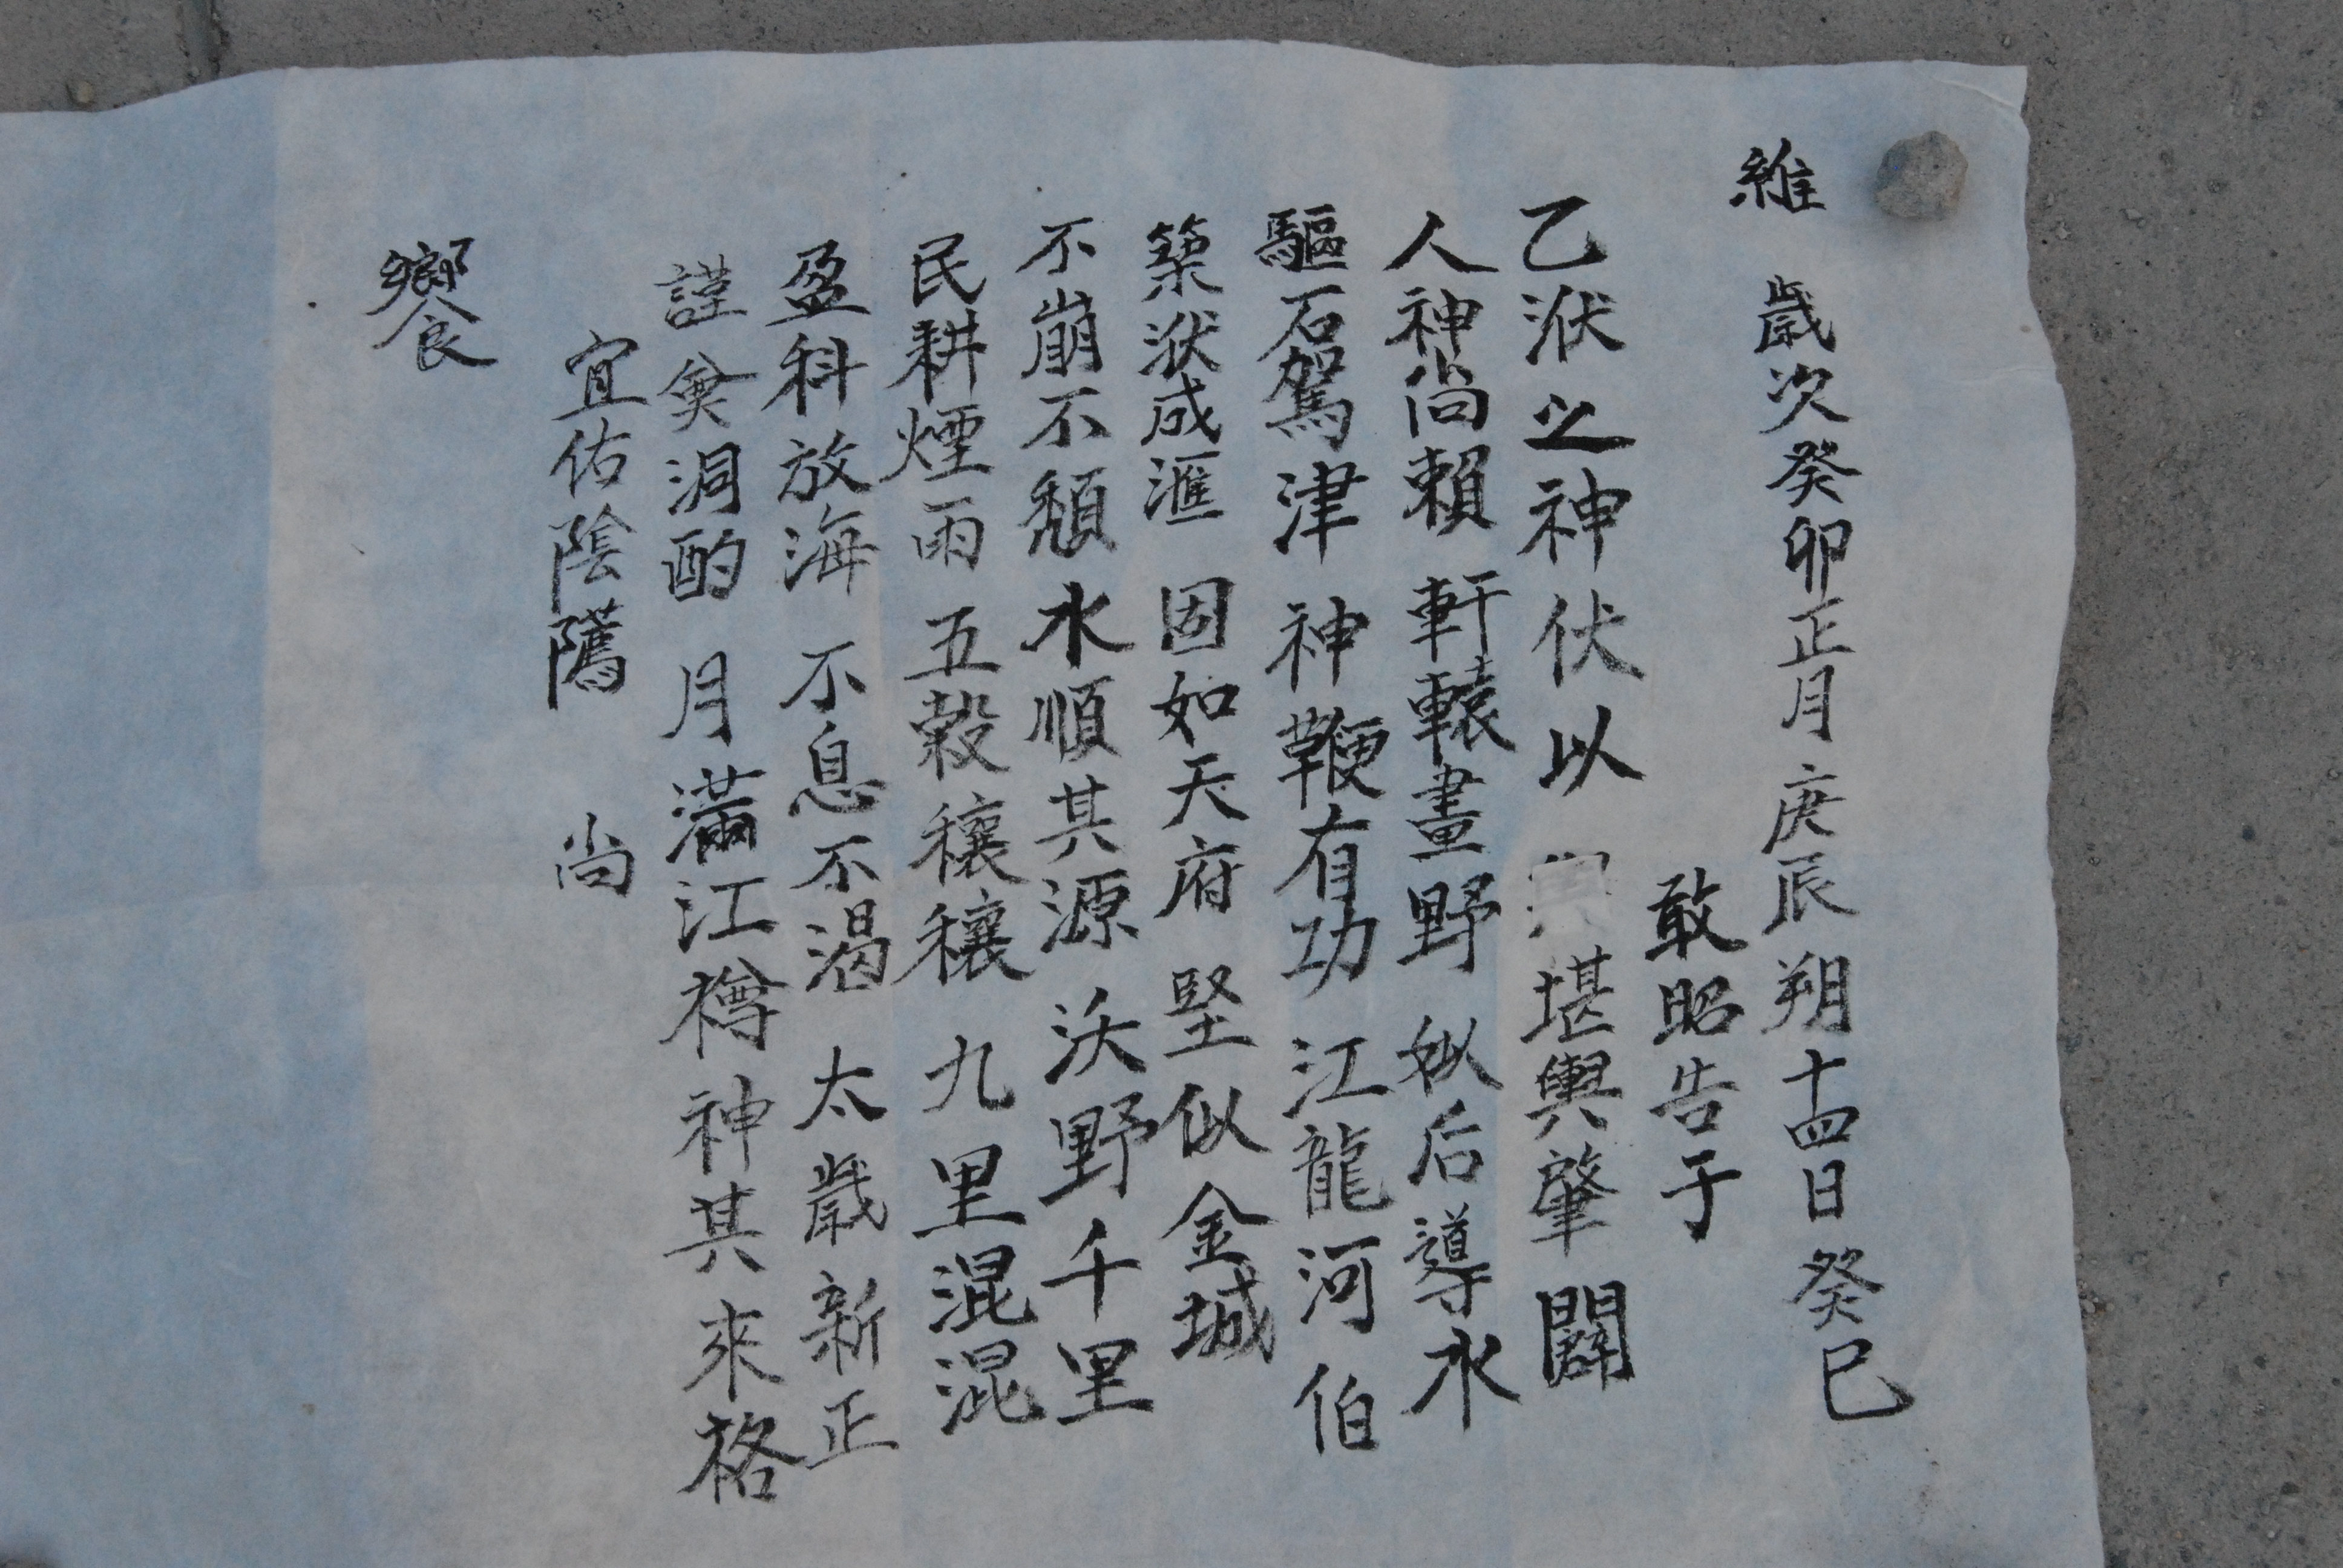 維 歲次癸卯正月 庚辰 朔十四日 癸巳
敢昭告于
乙洑之神伏以 堪輿肇闢
人神尙賴 軒轅畫野 姒后導水
驅石駕津 神鞭有功 江龍河伯
築洑成滙 固如天府 堅似金城
不崩不頹 水順其源 沃野千里
民耕煙雨 五穀穰穰 九里混混
盈科放海 不息不渴 太歲新正
謹奠泂酌 月滿江樽 神其來格
宜佑陰隲 尙
饗